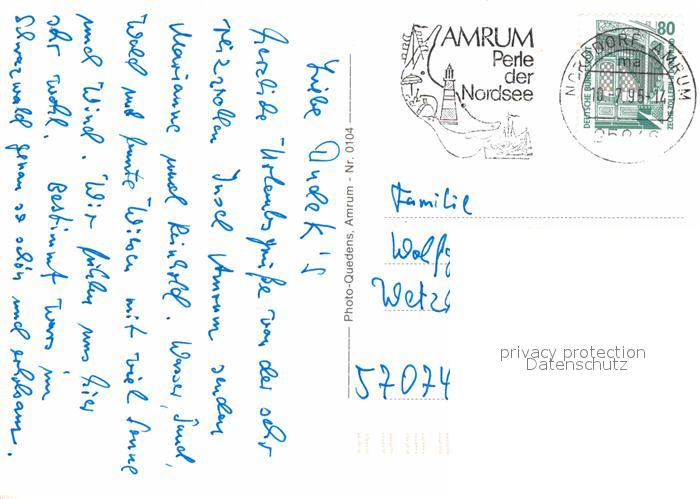 Liebe Dudek's
herzliche Urlaubsgrüße von der sehr
reizvollen Insel Amrum senden
Marianne und Reinhold. Wasser, Sand,
Wald und bunte Wiesen mit viel Sonne
und Wind. Wir fühlen uns hier
sehr wohl. Bestimmt wars im
Schwarzwald genau so schön und erholsam.
Photo-Quedens, Amrum - Nr. 0104
AMRUM
Perle
der
Nordsee
NORDDORF, AMRUM
ma
10.-7.95-12
80
DEUTSCHE BUNDESPOST
ZECHE ZOLLERN
Familie
Wolfg
Wetz
57074
privacy protection
Datenschutz